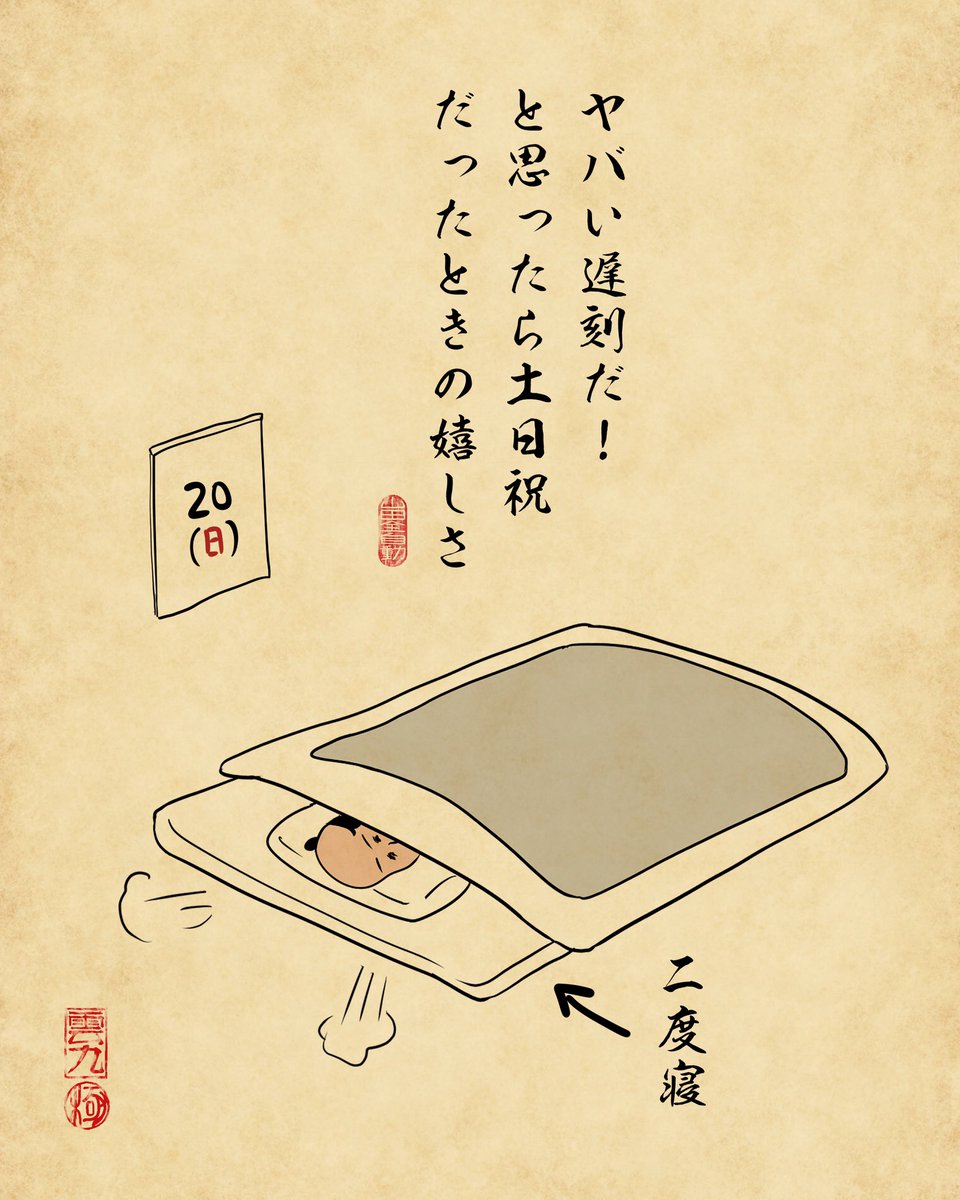 ヤバい遅刻だ！
と思ったら土日祝
だったときの嬉しさ
20
(日)
二度寝
雲九
極